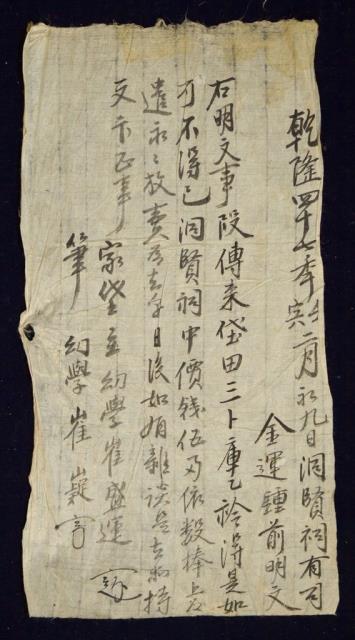 乾隆四十七季壬寅二月初九日洞賢祠有司
金運鍾前明文
右明文事段傳来垈田三卜庫乙於得是如
可不得已洞賢祠中價錢伍両依数捧上爲
遣永〻放賣爲去乎日後如有雜談是去等持
文卞正事
家垈主幼學崔盛運
筆幼學崔